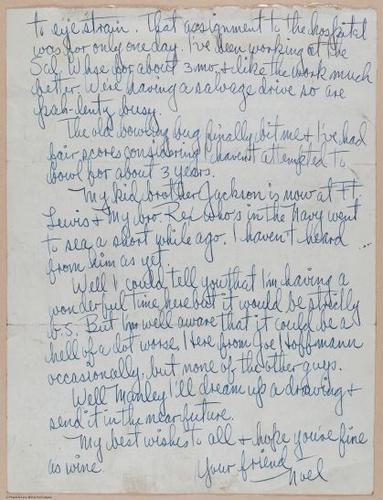 to eye strain. That assignment to the hospital
was for only one day. I've been working at the
Sal. Whse for about 3 mo. & like the work much
better. We're having a salvage drive so are
pah-lenty busy.
The old bowling bug finally bit me & I've had
fair scores considering I haven't attempted to
bowl for about 3 years.
My kid brother Jackson is now at Ft.
Lewis & My bro Rei who's in the Navy went
to sea a short while ago. I haven't heard
from him as yet.
Well I could tell you that I'm having a
wonderful time here but it would be strictly
b.S. But I'm well aware that it could be a
hell of a lot worse. I Hear from Joe Hoffmann
occasionally, but none of the other guys.
Well Manley I'll dream up a drawing &
send it in the near future.
My best wishes to all & hope you're fine
as wine.
Your friend
Noel